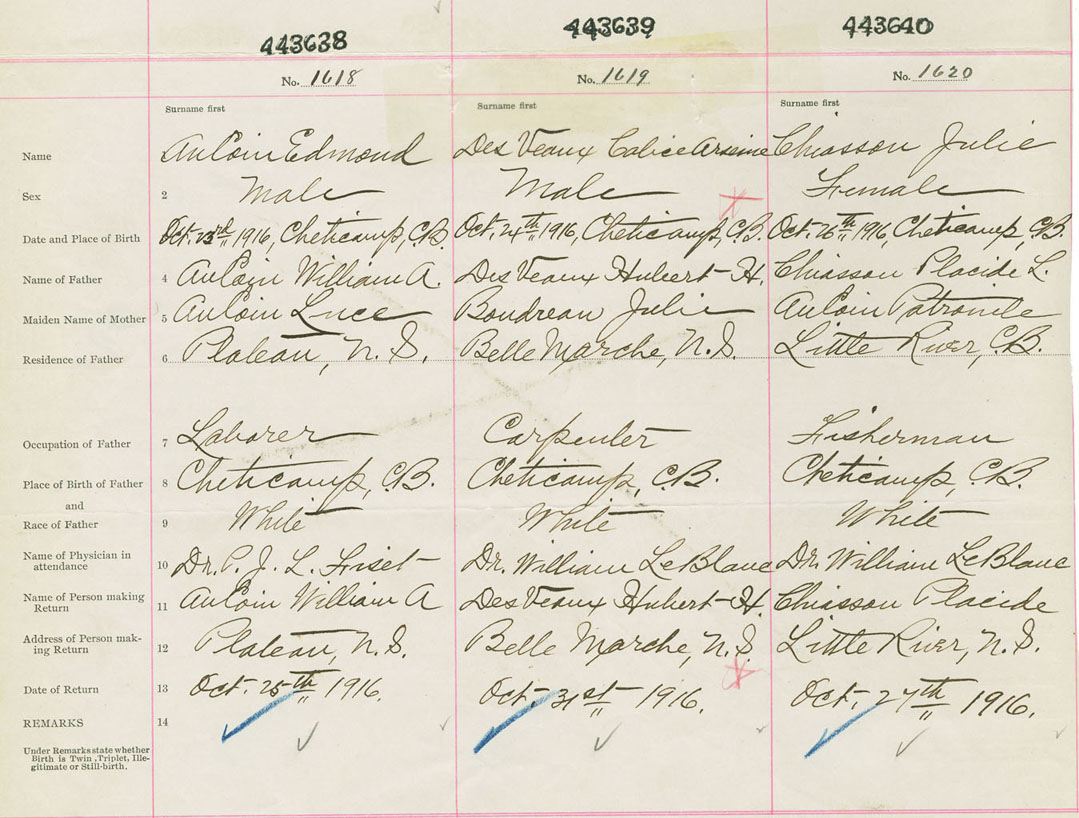 443638 443639 443640
No. 1618 No. 1619 No. 1620
Surname first Surname first Surname first
Name AuCoin Edmond Des Veaux Calice Arsene Chiasson Julie
Sex 2 Male Male Female
Date and Place of Birth Oct. 23rd 1916, Cheticamp, C.B. Oct. 24th 1916, Cheticamp, C.B. Oct. 26th 1916, Cheticamp, C.B.
Name of Father 4 AuCoin William A. Des Veaux Hubert H. Chiasson Placide L.
Maiden Name of Mother 5 AuCoin Luce Boudreau Julie AuCoin Patronile
Residence of Father 6 Plateau, N.S. Belle Marche, N.S. Little River, C.B.
Occupation of Father 7 Laborer Carpenter Fisherman
Place of Birth of Father 8 Cheticamp, C.B. Cheticamp, C.B. Cheticamp, C.B.
and
Race of Father 9 White White White
Name of Physician in
attendance 10 Dr. P. J. L. Fiset Dr. William LeBlanc Dr. William LeBlanc
Name of Person making
Return 11 AuCoin William A Des Veaux Hubert H. Chiasson Placide
Address of Person mak-
ing Return 12 Plateau, N.S. Belle Marche, N.S. Little River, N.S.
Date of Return 13 Oct. 25th 1916. Oct. 31st 1916. Oct. 27th 1916.
REMARKS 14
Under Remarks state whether
Birth is Twin, Triplet, Ille-
gitimate or Still-birth.